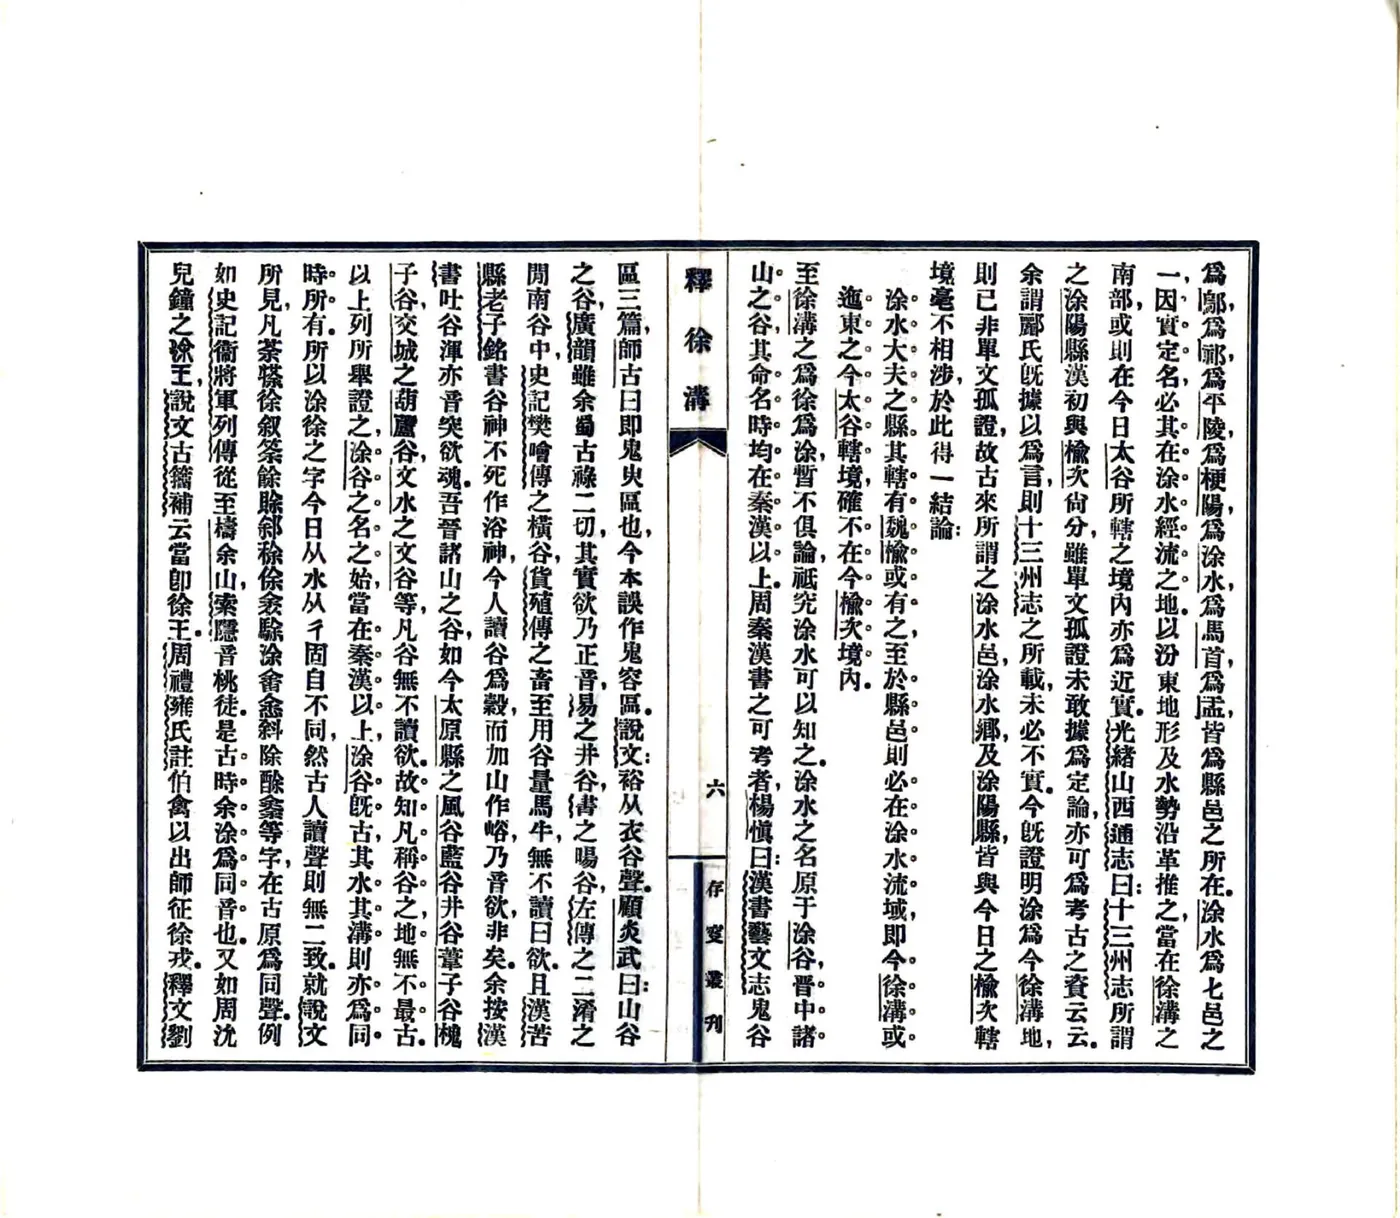 爲鄔,爲祁,爲平陵,爲梗陽,爲涂水,爲馬首,爲盂,皆爲縣邑之所在。涂水爲七邑之
一,因實定名,必其在涂水經流之地。以汾東地形及水勢沿革推之,當在徐溝之
南部,或則在今日太谷所轄之境內亦爲近實。光緒山西通志曰:十三州志所謂
之涂陽縣漢初與楡次尙分,雖單文孤證未敢據爲定論,亦可爲考古之資云云。
余謂酈氏旣據以爲言,則十三州志之所載,未必不實。今旣證明涂爲今徐溝地,
則已非單文孤證,故古來所謂之涂水邑,涂水鄕,及涂陽縣,皆與今日之楡次轄
境,毫不相涉,於此得一結論:
涂水大夫之縣其轄有魏楡或有之至於縣邑則必在涂水流域,即今徐溝或
迤東之今太谷轄境,確不在今楡次境內。
至徐溝之爲徐爲涂,暫不俱論,祗究涂水可以知之。涂水之名原于涂谷,晋中諸
山之谷,其命名時均在秦漢以上。周秦漢書之可考者,楊愼曰:漢書藝文志鬼谷
釋徐溝
六
存叢刊
區三篇,師古曰即鬼臾區也,今本誤作鬼容區。說文:裕从衣谷聲。顧炎武曰:山谷
之谷,廣韻雖余蜀古祿二切,其實欲乃正音,易之井谷,書之暘谷,左傳之二淆之
閒南谷中,史記樊噲傳之橫谷,貨殖傳之畜至用谷量馬牛,無不讀曰欲。且漢苦
縣老子銘書谷神不死作浴神,今人讀谷爲穀,而加山作峪,乃音欲,非矣。余按漢
書吐谷渾亦音突欲魂。吾晉諸山之谷,如今太原縣之風谷藍谷井谷葦子谷槐
子谷,交城之葫蘆谷,文水之文谷等,凡谷無不讀欲。故知凡稱谷之地無不最古。
以上列所舉證之,涂谷之名之始,當在秦漢以上,涂谷旣古,其水其溝則亦爲同
時所有。所以涂徐之字今日从水从彳固自不同,然古人讀聲則無二致。就說文
所見,凡荼徐叙筡餘賖涂畬悆斜除等字,在古原爲同聲。例
如史記衞將軍列傳從至檮余山,索隱音桃徒。是古時余涂爲同音也。又如周沇
兒鐘之王,說文古籒補云當卽徐王。周禮雍氏註伯禽以出師征徐戎。釋文劉